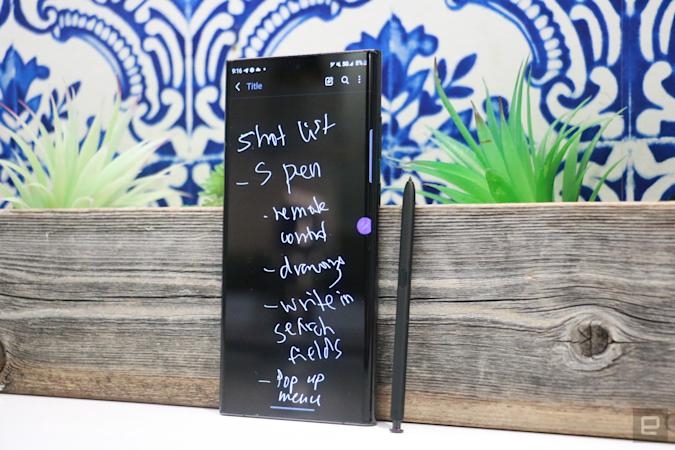 9:16
Title
Shot list
- S pen
- remote
control
- drawing
- write in
search
fields
- Pop up
menu
e